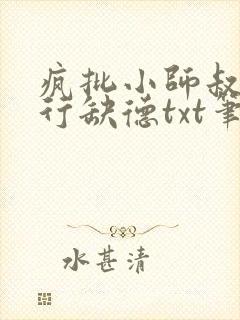 疯批小师叔
行缺德txt笔
水甚清